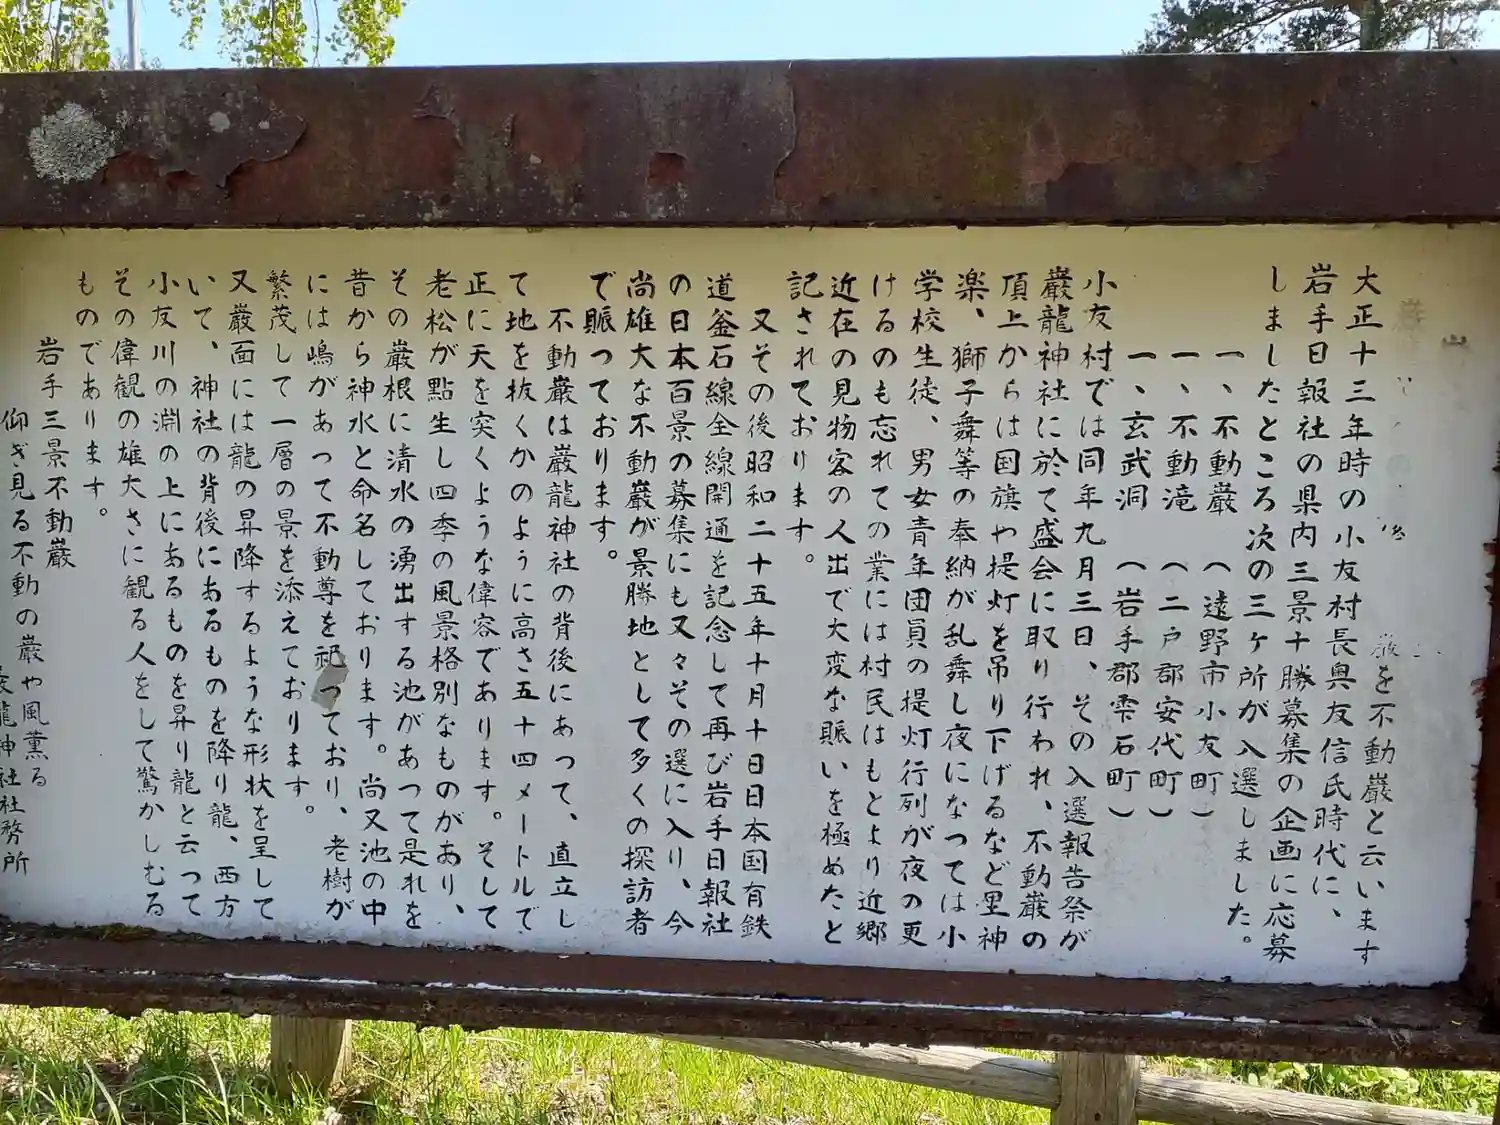 巌を不動巌と云います
大正十三年時の小友村長奥友信氏時代に、
岩手日報社の県内三景十勝募集の企画に応募
しましたところ次の三ヶ所が入選しました。
一、不動巌 (遠野市小友町)
一、不動滝 (二戸郡安代町)
一、玄武洞 (岩手郡雫石町)
小友村では同年九月三日、その入選報告祭が
巌龍神社に於て盛会に取り行われ、不動巌の
頂上からは国旗や提灯を吊り下げるなど里神
楽、獅子舞等の奉納が乱舞し夜になつては小
学校生徒、男女青年団員の提灯行列が夜の更
けるのも忘れての業には村民はもとより近郷
近在の見物客の人出で大変な賑いを極めたと
記されております。
又その後昭和二十五年十月十日日本国有鉄
道釜石線全線開通を記念して再び岩手日報社
の日本百景の募集にも又々その選に入り、今
尚雄大な不動巌が景勝地として多くの探訪者
で賑つております。
不動巌は巌龍神社の背後にあつて、直立し
て地を抜くかのように高さ五十四メートルで
正に天を突くような偉容であります。そして
老松が點生し四季の風景格別なものがあり、
その巌根に清水の湧出する池があつて是れを
昔から神水と命名しております。尚又池の中
には嶋があつて不動尊を祀つており、老樹が
繁茂して一層の景を添えております。
又巌面には龍の昇降するような形状を呈して
いて、神社の背後にあるものを降り龍、西方
小友川の淵の上にあるものを昇り龍と云つて
その偉観の雄大さに観る人をして驚かしむる
ものであります。
岩手三景不動巌
仰ぎ見る不動の巌や風薫る
巌龍神社社務所